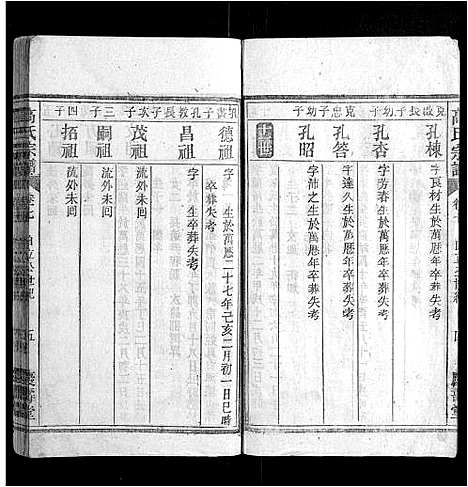 孔棟
字良材生於萬曆年卒葬失考
孔杏
字芳春生於萬曆年卒葬失考
克忠子
孔答
字達久生於萬曆年卒葬失考
幼子
孔昭
字沛之生於萬曆年卒葬失考
德祖
字
生於萬曆二十七年己亥二月初一日巳時
卒葬失考
孔教長子
昌祖
字
生卒葬失考
次子
茂祖
流外未回
三子
嗣祖
流外未回
四子
拓祖
流外未回
高氏宗譜
五
慶善堂